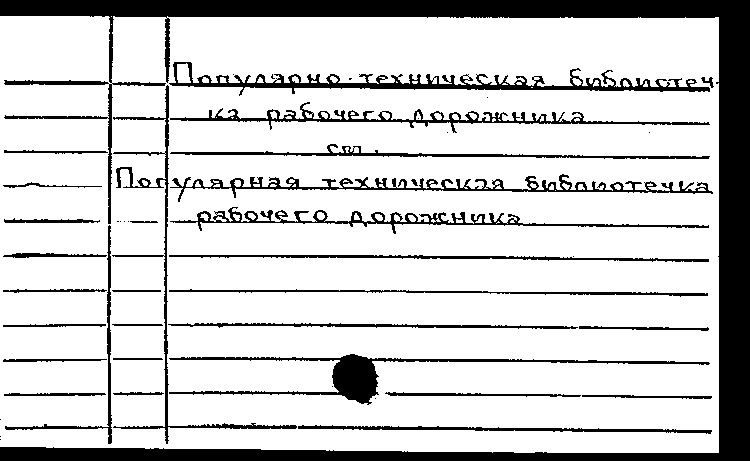 Популярно-техническая библиотеч-
ка рабочего дорожника
см.
Популярная техническая библиотечка
рабочего дорожника